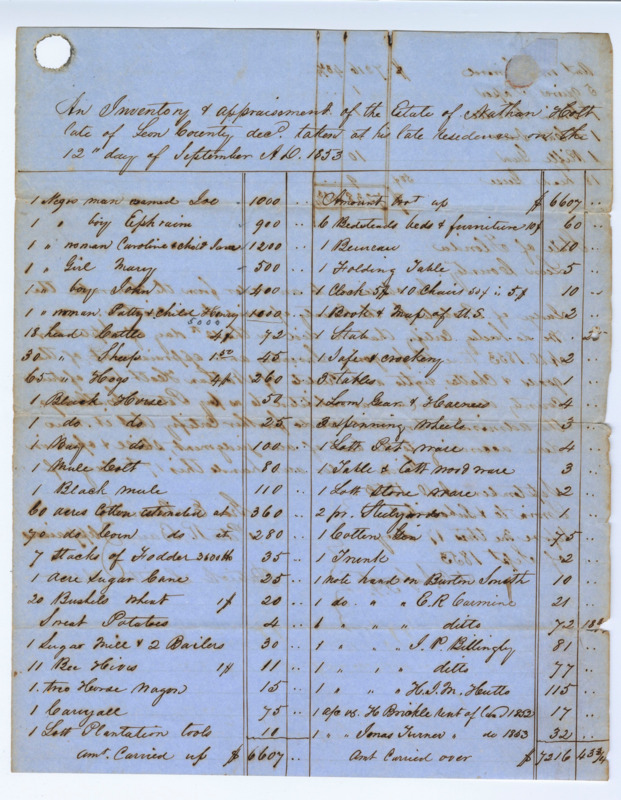 An Inventory & appraisement of the Estate of Nathan Holt
late of Leon County decd. taken at his late residence on the
12" day of September A.D. 1853
1 Negro man named Joe " 1000 ..
1 " boy Ephraim " 900 ..
1 " woman Caroline & child 1200 ..
1 " Girl Mary - 500 ..
1 " boy John " 400 ..
1 " woman Patty & child Henry 1000 ..
5000
18 head Cattle 4$ 72 ..
30 " Sheep 1.50 45 ..
65 " Hogs 4$ 260 ..
1 Black Horse 50 ..
1 do. do 25 ..
1 Bay do 100 ..
1 Mule Colt 80 ..
1 Black mule 110 ..
60 acres Cotton estimated at 360 ..
70 do Corn do at 280 ..
7 Stacks of Fodder 3500 lb 35 ..
1 Acre Sugar Cane 25 ..
20 Bushels wheat 1$ 20 ..
Sweet Potatoes 4 ..
1 Sugar Mill & 2 Boilers 30 ..
11 Bee Hives 1$ 11 ..
1 two Horse wagon 15 ..
1 Carryall 75 ..
1 Lott Plantation tools 10 ..
amt. Carried up $ 6607 ..
Amount brot up $ 6607 ..
6 Bedsteads beds & furniture 10$ 60 ..
1 Beureau 10 ..
1 Folding Table 5 ..
1 Clock 5$ 10 Chairs 50¢ is 5$ 10 ..
1 Book & Map of U.S. 2 ..
1 Slab .. 25
1 Safe & crockery 2 ..
3 Tables 1 ..
1 Loom Gear & Harness 4 ..
3 Spinning wheels 3 ..
1 Lott Pot ware 4 ..
1 Table & Lott wood ware 3 ..
1 Lott stone ware 2 ..
2 pr. Steelyards 1 ..
1 Cotton Gin 75 ..
1 Trunk 2 ..
1 Note hand on Burton Smith 10 ..
1 do. " " E.R. Carmine 21 ..
1 " " " ditto 72 18¾
1 " " " J. P. Billingly 81 ..
1 " " " ditto 77 ..
1 " " " H.J.M. Hutto 115 ..
1 a/c vs. H Brickle rent of land 1852 17 ..
1 " " Jonas Turner " do 1853 32 ..
Amt Carried over $ 7216 43¾